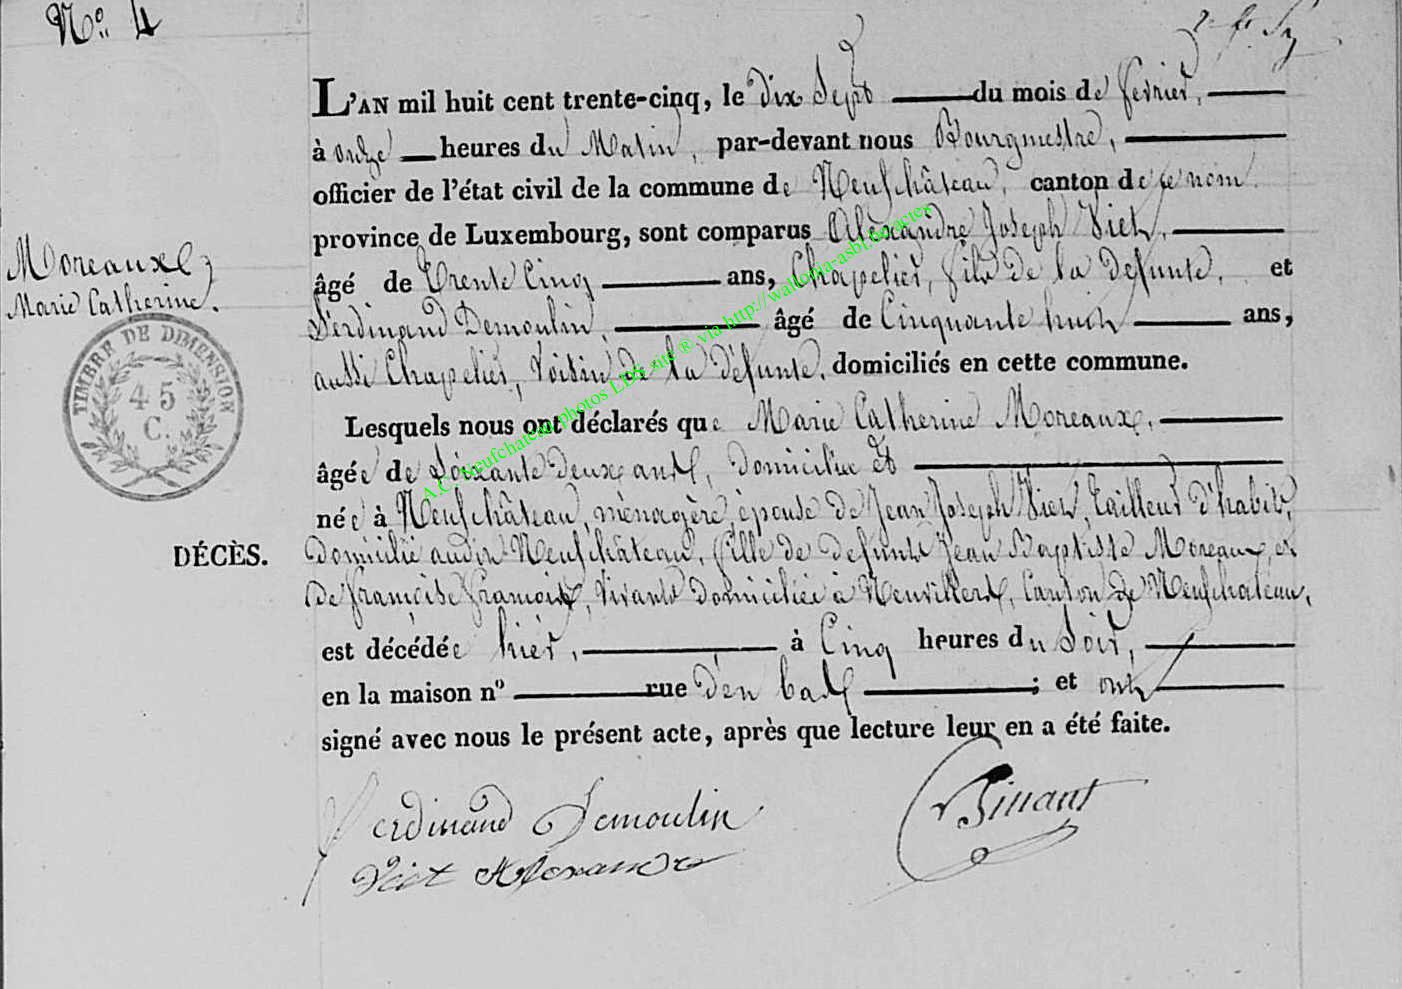 N.º 4
L'AN mil huit cent trente-cinq, le dix Sept du mois de fevrier,
à onze heures du Matin, par-devant nous Bourgmestre,
officier de l'état civil de la commune de Neufchâteau, canton de ce nom
province de Luxembourg, sont comparus Alexandre Joseph Viet,
âgé de Trente Cinq ans, Chapelier, fils de la défunte, et
Ferdinand Demoulin âgé de Cinquante huit ans,
aussi Chapelier, Voisin de la défunte, domiciliés en cette commune.
Moreaux
Marie Catherine.
TIMBRE DE DIMENSION
45
C.
Lesquels nous ont déclarés que Marie Catherine Moreaux,
âgée de Soixante deux ans, domiciliée et
née à Neufchâteau, ménagère, épouse de Jean Joseph Viet, Tailleur d'habits,
DÉCÈS.
Domicilié audit Neufchâteau, fille de defunts Jean Baptiste Moreaux et
de françoise françois, Vivants domiciliée à Neuvillers, Canton de Neufchateau,
est décédée hier, à Cinq heures du Soir,
en la maison nº rue d'en bas ; et ont
signé avec nous le présent acte, après que lecture leur en a été faite.
Ferdinand Demoulin
Viet Alexandre
A.C. Neufchateau photos LDS site ® via http://wallonia-asbl.be/actes